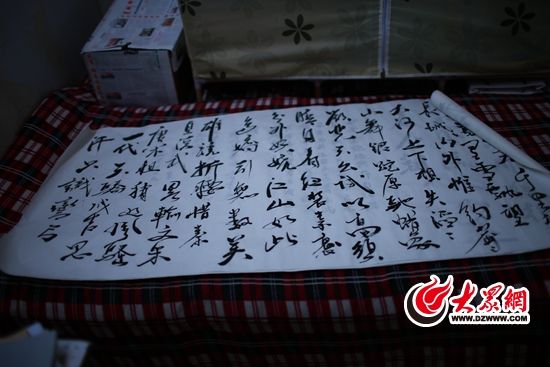 里雪飘望
长城内外惟
大河上下顿失滔
山舞银蛇原驰蜡象
欲与天公试比高须
晴日看红装素裹
分外妖娆江山如此
多娇引无数英
雄竞折腰惜秦
皇汉武略输文采
唐宗宋祖稍逊风骚
一代天骄成吉思
汗只识弯弓
大众网
WWW.DZWWW.COM